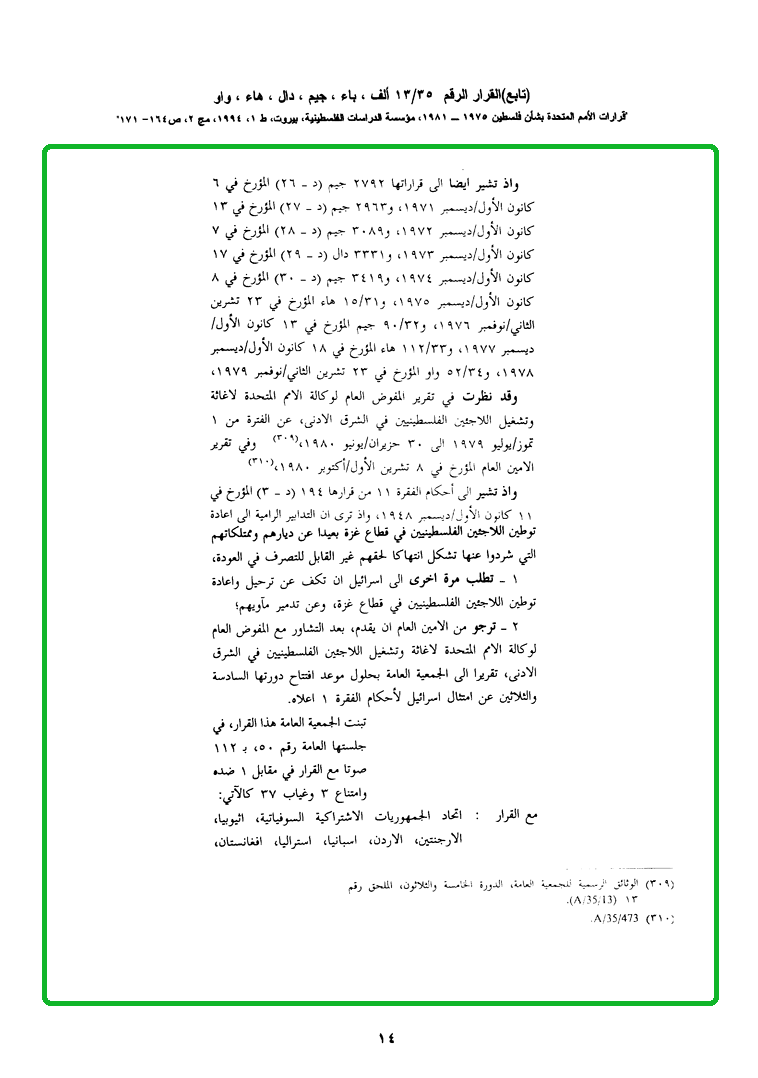 (تابع)القرار الرقم ١٣/٣٥ ألف ، باء ، جيم ، دال ، هاء ، واو
"قرارات الأمم المتحدة بشأن فلسطين ١٩٧٥ – ١٩٨١، مؤسسة الدراسات الفلسطينية، بيروت، ط ١، ١٩٩٤، مج ٢، ص١٦٤- ١٧١"
واذ تشير ايضا الى قراراتها ٢٧٩٢ جيم (د – ٢٦) المؤرخ في ٦
كانون الأول/ديسمبر ١٩٧١، و٢٩٦٣ جيم (د – ٢٧) المؤرخ في ١٣
كانون الأول/ديسمبر ١٩٧٢، و٣٠٨٩ جيم (د – ٢٨) المؤرخ في ٧
كانون الأول/ديسمبر ١٩٧٣، و٣٣٣١ دال (د – ٢٩) المؤرخ في ١٧
كانون الأول/ديسمبر ١٩٧٤، و٣٤١٩ جيم (د – ٣٠) المؤرخ في ٨
كانون الأول/ديسمبر ١٩٧٥، و١٥/٣١ هاء المؤرخ في ٢٣ تشرين
الثاني/نوفمبر ١٩٧٦، و٩٠/٣٢ جيم المؤرخ في ١٣ كانون الأول/
ديسمبر ١٩٧٧، و١١٢/٣٣ هاء المؤرخ في ١٨ كانون الأول/ديسمبر
١٩٧٨، و٥٢/٣٤ واو المؤرخ في ٢٣ تشرين الثاني/نوفمبر ١٩٧٩،
وقد نظرت في تقرير المفوض العام لوكالة الامم المتحدة لاغاثة
وتشغيل اللاجئين الفلسطينيين في الشرق الادنى، عن الفترة من ١
تموز/يوليو ١٩٧٩ الى ٣٠ حزيران/يونيو ١٩٨٠،(٣٠٩) وفي تقرير
الامين العام المؤرخ في ٨ تشرين الأول/أكتوبر ١٩٨٠،(٣١٠)
واذ تشير الى أحكام الفقرة ١١ من قرارها ١٩٤ (د – ٣) المؤرخ في
١١ كانون الأول/ديسمبر ١٩٤٨، واذ ترى ان التدابير الرامية الى اعادة
توطين اللاجئين الفلسطينيين في قطاع غزة بعيدا عن ديارهم وممتلكاتهم
التي شردوا عنها تشكل انتهاكا لحقهم غير القابل للتصرف في العودة،
١ – تطلب مرة اخرى الى اسرائيل ان تكف عن ترحيل واعادة
توطين اللاجئين الفلسطينيين في قطاع غزة، وعن تدمير مآويهم؛
٢ – ترجو من الامين العام ان يقدم، بعد التشاور مع المفوض العام
لوكالة الامم المتحدة لاغاثة وتشغيل اللاجئين الفلسطينيين في الشرق
الادنى، تقريرا الى الجمعية العامة بحلول موعد افتتاح دورتها السادسة
والثلاثين عن امتثال اسرائيل لأحكام الفقرة ١ اعلاه.
تبنت الجمعية العامة هذا القرار، في
جلستها العامة رقم ٥٠، بـ ١١٢
صوتا مع القرار في مقابل ١ ضده
وامتناع ٣ وغياب ٣٧ كالآتي:
مع القرار : اتحاد الجمهوريات الاشتراكية السوفياتية، اثيوبيا،
الارجنتين، الاردن، اسبانيا، استراليا، افغانستان،
(٣٠٩) الوثائق الرسمية للجمعية العامة، الدورة الخامسة والثلاثون، الملحق رقم
١٣ (A/35/13).
(٣١٠) A/35/473.
١٤